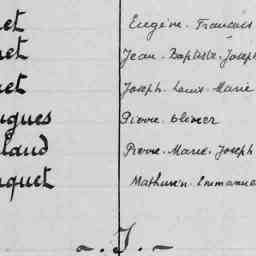 et Eugène - François
et Jean - Baptiste - Joseph
et Joseph - Louis - Marie
ugues Pierre - Olivier
laud Pierre - Marie - Joseph
quet Mathurin - Emmanue
- J. -